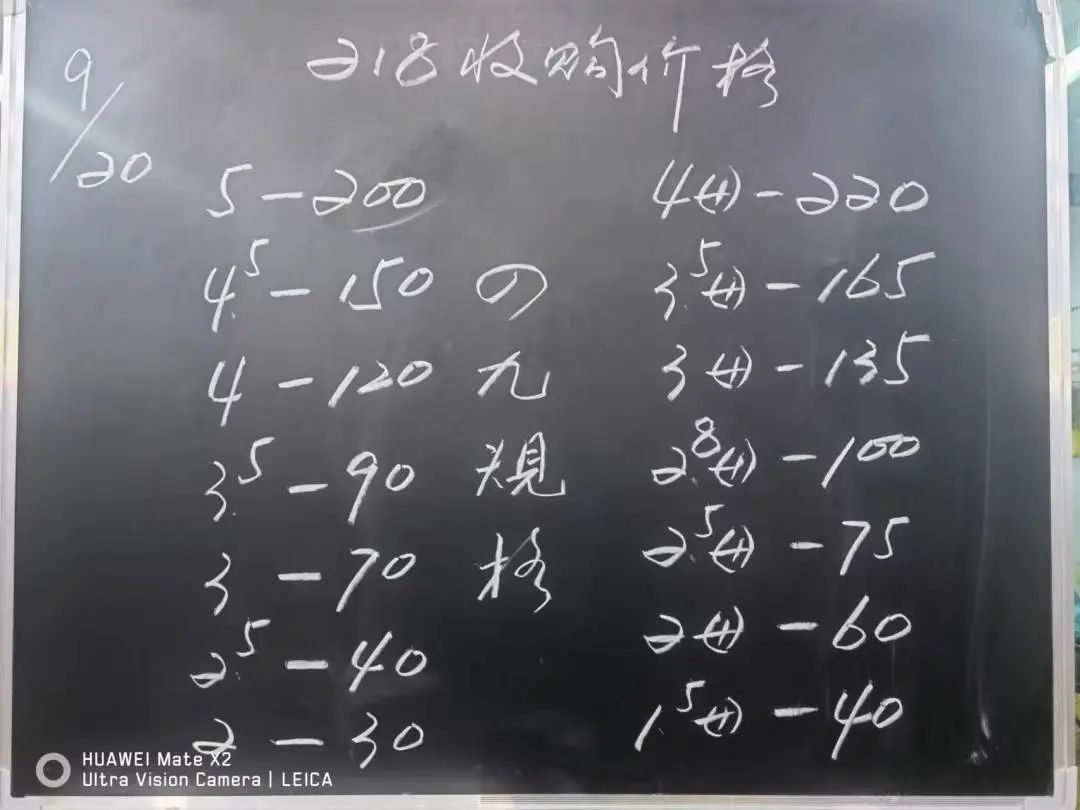 218收购价格
9/20
5-200
4.5-150
4-120
3.5-90
3-70
2.5-40
2-30
の
九
規
格
4(+)-220
3.5(+)-165
3(+)-135
2.8(+)-100
2.5(+)-75
2(+)-60
1.5(+)-40
HUAWEI Mate X2
Ultra Vision Camera | LEICA